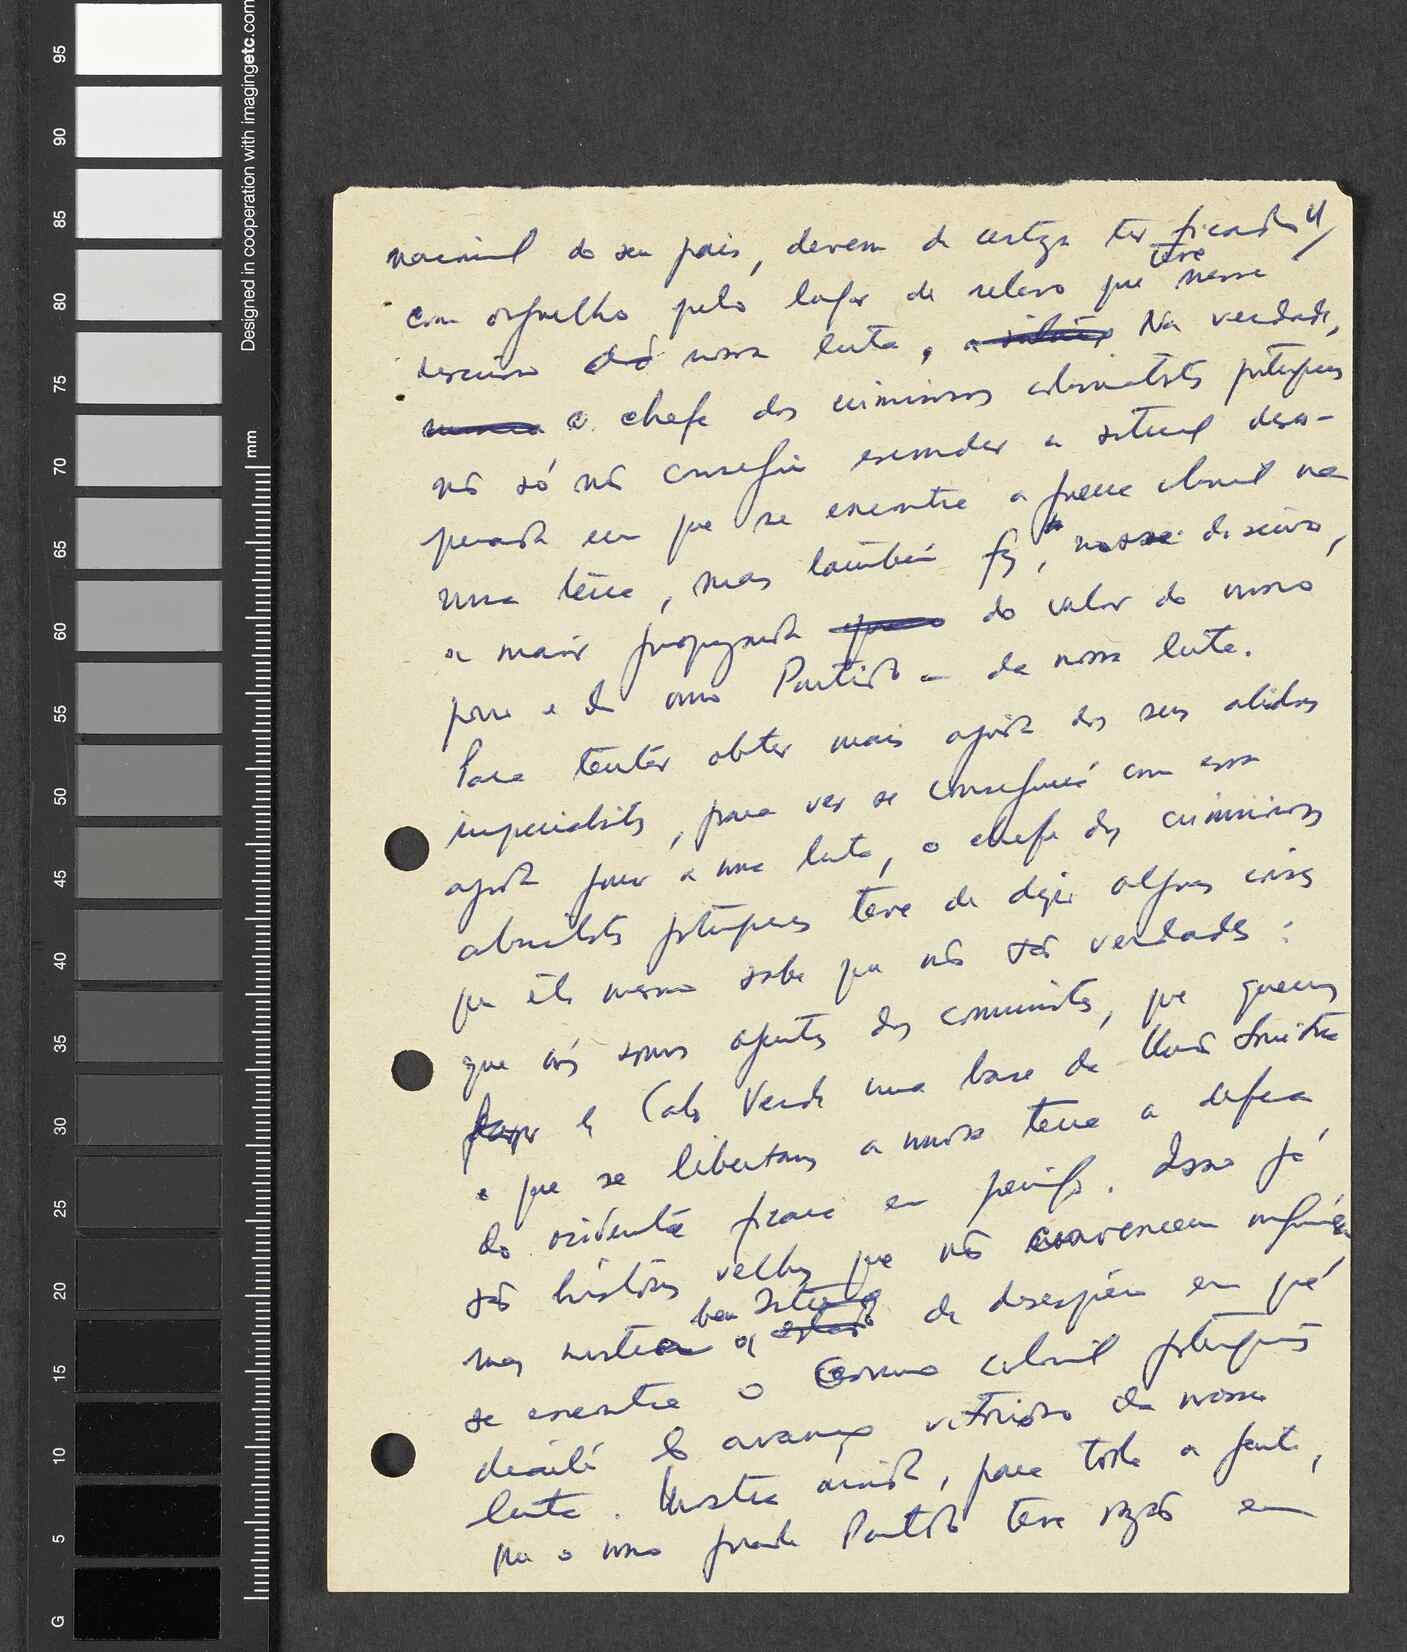 4/
nacional do seu país, devem de certeza ter ficado
com orgulho pelo lugar de relevo que teve nesse
discurso a nossa luta. Na verdade,
o chefe dos criminosos colonialistas portugueses
não só não conseguiu esconder a situação deses-
perada em que se encontra a guerra colonial na
nossa terra, mas também fez, nesse discurso,
a maior propaganda do valor do nosso
povo e do nosso Partido – da nossa luta.
Para tentar obter mais ajuda dos seus aliados
imperialistas, para ver se conseguirá com essa
ajuda parar a nossa luta, o chefe dos criminosos
colonialistas portugueses teve de dizer algumas coisas
que êle mesmo sabe que não são verdades:
que nós somos agentes dos comunistas, que queremos
fazer de Cabo Verde uma base da União Soviética
e que se libertamos a nossa terra a defesa
do ocidente ficará em perigo. Isso já
são histórias velhas que não convencem ninguém
mas mostram bem a situação de desespêro em que
se encontra o Govêrno colonial português
diante do avanço vitorioso da nossa
luta. Mostra ainda, para toda a gente,
que o nosso grande Partido teve razão em
95
90
85
80
75
70
65
60
55
50
45
40
35
30
25
20
15
10
5
G
mm
Designed in cooperation with imagingetc.com